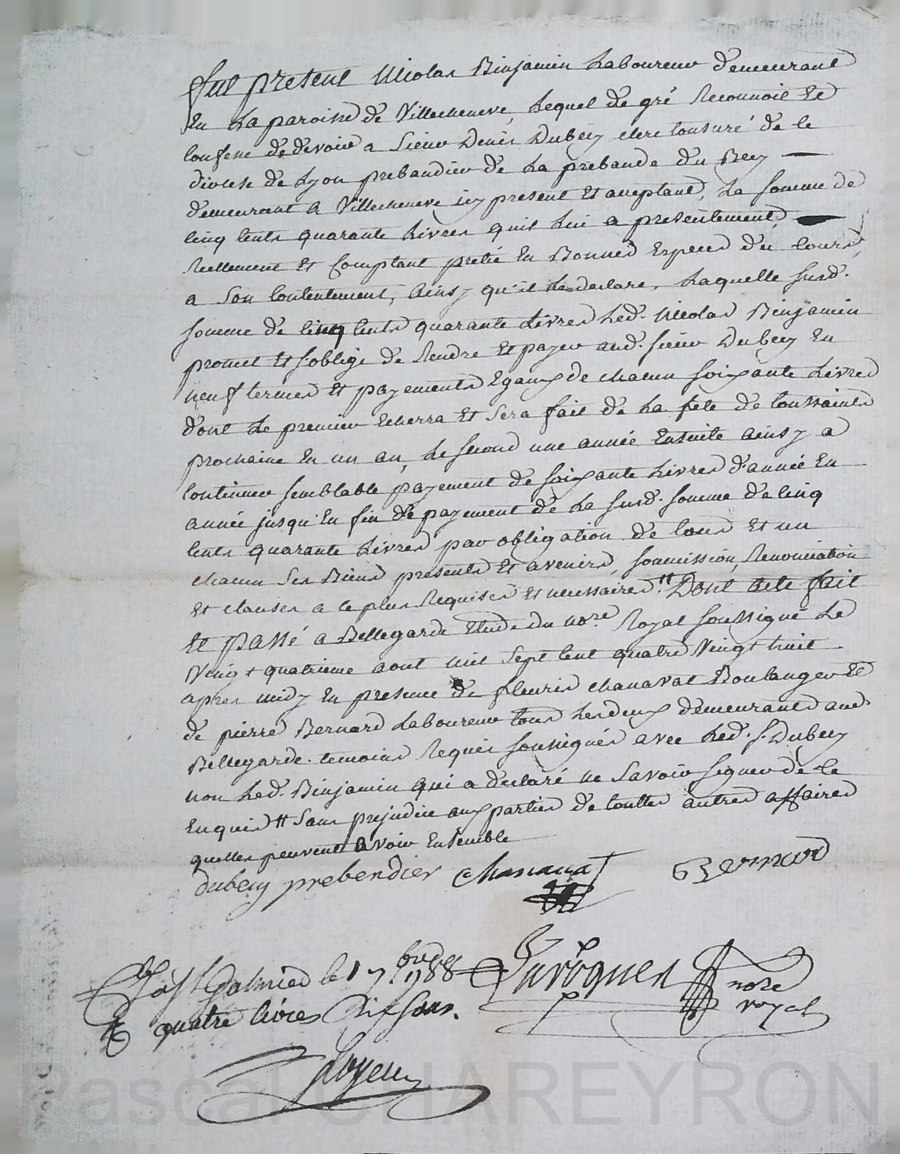 fut present Nicolas Binjamin Laboureur demeurant
En La paroisse de Villecheneve, Lequel de gré Reconnoit Et
Confesse de devoir a Sieur Denis Dubeuy clerc tonsuré de le
diocese de Lyon prebandier de La prebande du Bey
demeurant a Villecheneve icy present Et aceptant, La somme de
Cinq Cents quarante Livres quil Lui a presentement
Reellement Et Comptant preté En Bonnes Especes du cours
a Son Contentement, ainsy qu'il Le declare, Laquelle susd.
somme de Cinq Cents quarante Livres Led. Nicolas Binjamin
promet Et soblige de Rendre Et payer aud. sieur Dubeuy En
neuf termes Et payements Egaux de chacun soixante Livres
dont Le premier Echerra Et Sera fait de La fete de toussaints
prochaine En un an, Le second une année Ensuite ainsy a
Continuer semblable payement de soixante Livres d'année En
année jusqu'En fin de payement de La susd. somme de Cinq
Cents quarante Livres par obligation de tous Et un
chacun Ses Biens presents Et avenirs, soumission, Renonciation
Et clauses a ce plus Requises Et necessaires tt Dont acte fait
Et passé a Bellegarde Etude du nore Royal soussigné Le
Vingt quatrieme aout mil Sept Cent quatre Vingt huit
apres midy En presence de fleurie Chanavat Boulanger Et
de pierre Bernard Laboureur tous Les deux demeurant aud.
Bellegarde temoins Requis soussignés avec Led. s. Dubeuy
non Led. Binjamin qui a declaré ne Savoir signer de ce
Enquis tt Sans prejudice aux parties de touttes autres affaires
quelles peuvent avoir Ensemble
dubeuy prebendier Chanavat Bernard
a St Galmier le 1 7bre 1788 nore
quatre livres dix sous. royal
Pascal CHAREYRON